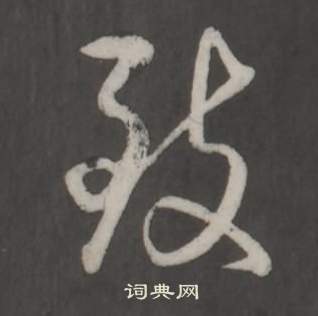 致
词典网